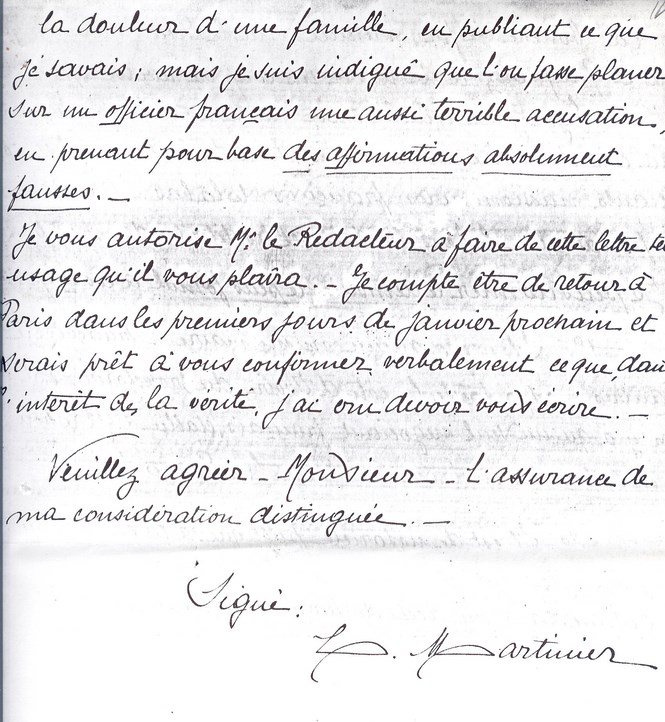 la douleur d'une famille, en publiant ce que
je savais; mais je suis indigné que l'on fasse planer
sur un officier français une aussi terrible accusation,
en prenant pour base des affirmations absolument
fausses. _
Je vous autorise Mr. le Redacteur à faire de cette lettre tel
usage qu'il vous plaira. _ Je compte être de retour à
Paris dans les premiers jours de janvier prochain et
serais prêt à vous confirmer verbalement ce que, dans
l'interêt de la verité, j'ai cru devoir vous écrire. _
Veuillez agréer _ Monsieur _ l'assurance de
ma considération distinguée. _
Signé:
Martinier